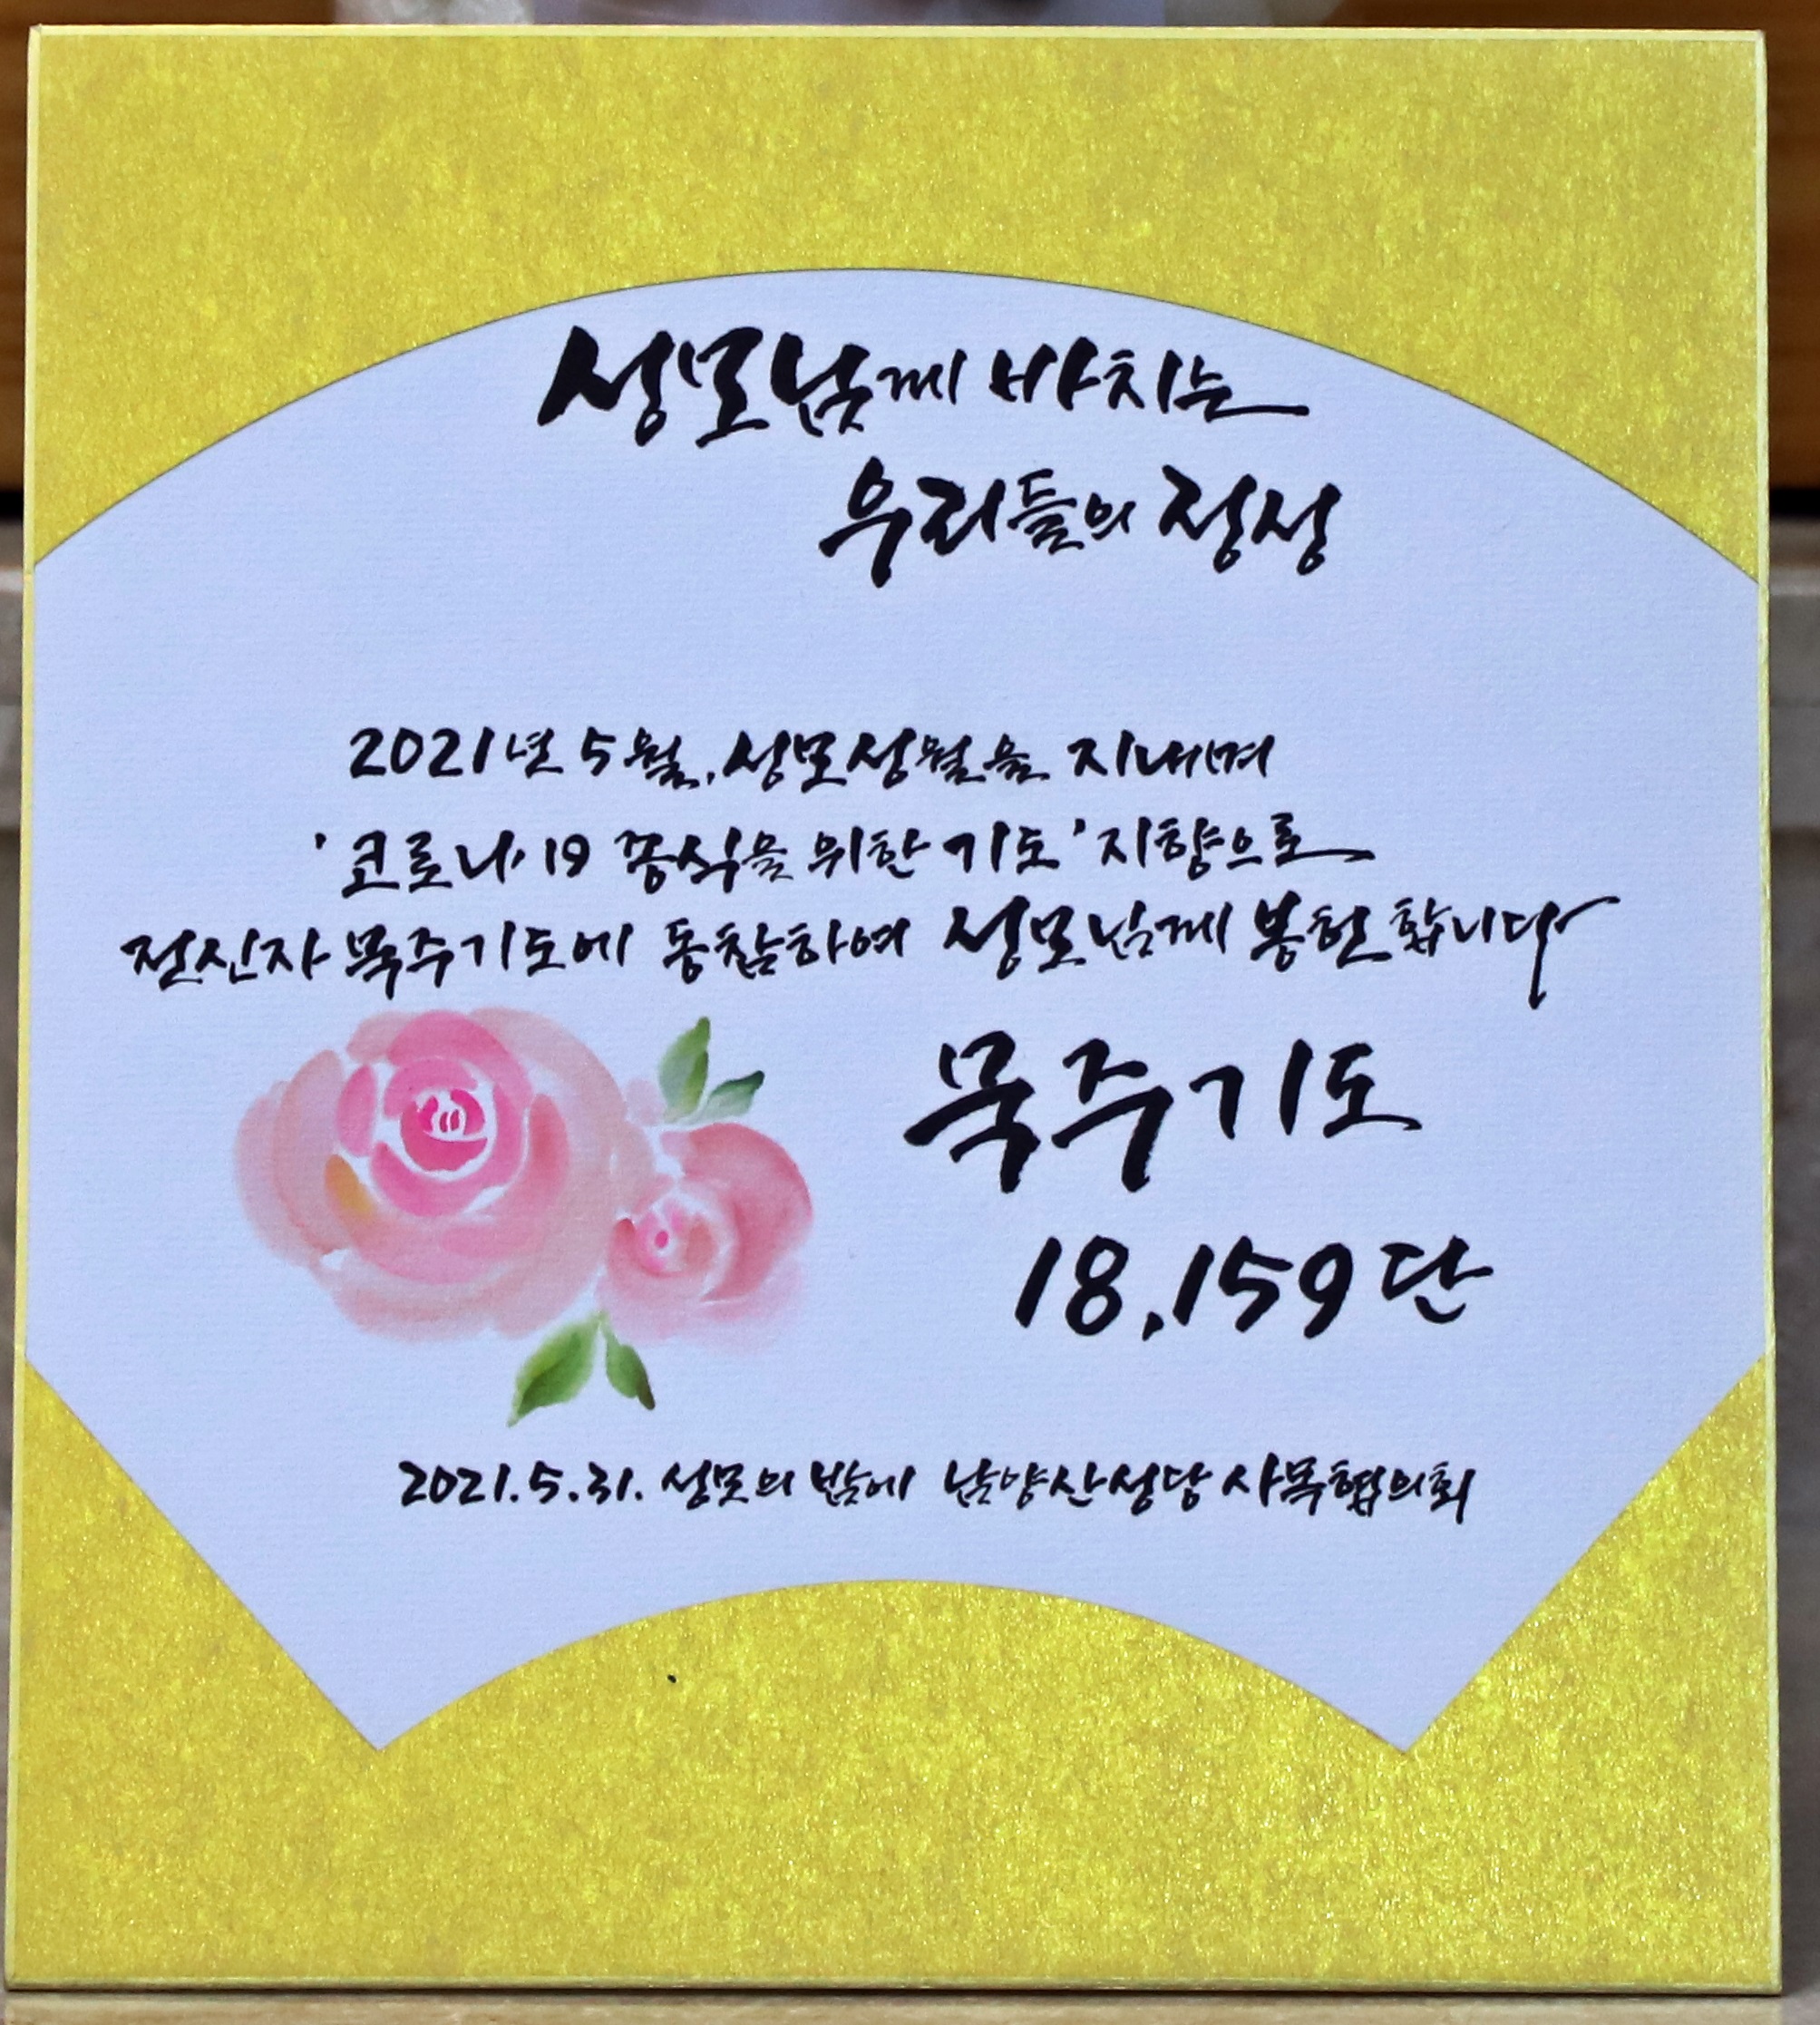 성모님께 바치는
우리들의 정성
2021년 5월, 성모성월을 지내며
'코로나19 종식을 위한 기도' 지향으로
전신자 묵주기도에 동참하여 성모님께 봉헌합니다
묵주기도
18,159단
2021.5.31. 성모의 밤에 남양산성당 사목협의회